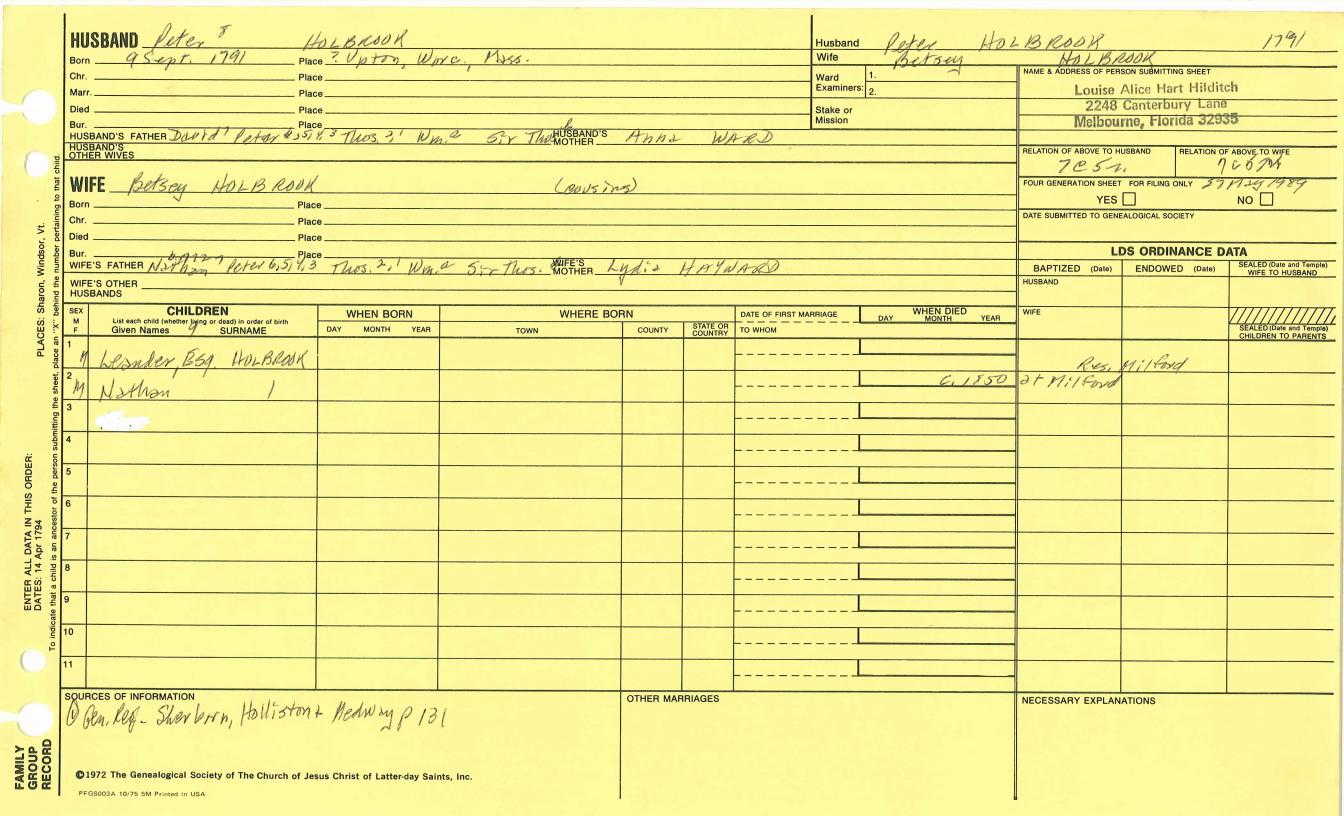 HUSBAND Peter HOLBROOK
Born 9 Sept. 1791 Place ? Upton, Worc, Mass.
Chr. Place
Marr. Place
Died Place
Bur. Place
HUSBAND'S FATHER David Peter 6,5,4,3 Thos. 2,1 Wm. a Sir Thos. HUSBAND'S MOTHER Anna WARD
HUSBAND'S OTHER WIVES
WIFE Betsey HOLBROOK (cousins)
Born Place
Chr. Place
Died Place
Bur. Place
WIFE'S FATHER Nathan Peter 6,5,4,3 Thos. 2,1 Wm. a Sir Thos. WIFE'S MOTHER Lydia HAYWARD
WIFE'S OTHER HUSBANDS
Husband Peter HOLBROOK 1791
Wife Betsey HOLBROOK
Ward Examiners: 1.
2.
Stake or Mission
NAME & ADDRESS OF PERSON SUBMITTING SHEET
Louise Alice Hart Hilditch
2248 Canterbury Lane
Melbourne, Florida 32935
RELATION OF ABOVE TO HUSBAND RELATION OF ABOVE TO WIFE
7C5r.
FOUR GENERATION SHEET FOR FILING ONLY 27 May 1989
YES NO
DATE SUBMITTED TO GENEALOGICAL SOCIETY
LDS ORDINANCE DATA
BAPTIZED (Date) ENDOWED (Date) SEALED (Date and Temple) WIFE TO HUSBAND
HUSBAND
WIFE
SEALED (Date and Temple) CHILDREN TO PARENTS
SEX M F
CHILDREN
List each child (whether living or dead) in order of birth
Given Names SURNAME
WHEN BORN
DAY MONTH YEAR
WHERE BORN
TOWN COUNTY STATE OR COUNTRY
DATE OF FIRST MARRIAGE
TO WHOM
WHEN DIED
DAY MONTH YEAR
1 M Leander, Esq. HOLBROOK Res. Milford
2 M Nathan c. 1850 at Milford
3
4
5
6
7
8
9
10
11
SOURCES OF INFORMATION
① Gen. Reg. - Sherborn, Holliston & Medway p 131
OTHER MARRIAGES
NECESSARY EXPLANATIONS
©1972 The Genealogical Society of The Church of Jesus Christ of Latter-day Saints, Inc.
PFGS003A 10/75 5M Printed in USA
FAMILY GROUP RECORD
ENTER ALL DATA IN THIS ORDER:
DATES: 14 Apr 1794
PLACES: Sharon, Windsor, Vt.
To indicate that a child is an ancestor of the person submitting the sheet, place an "X" behind the number pertaining to that child.